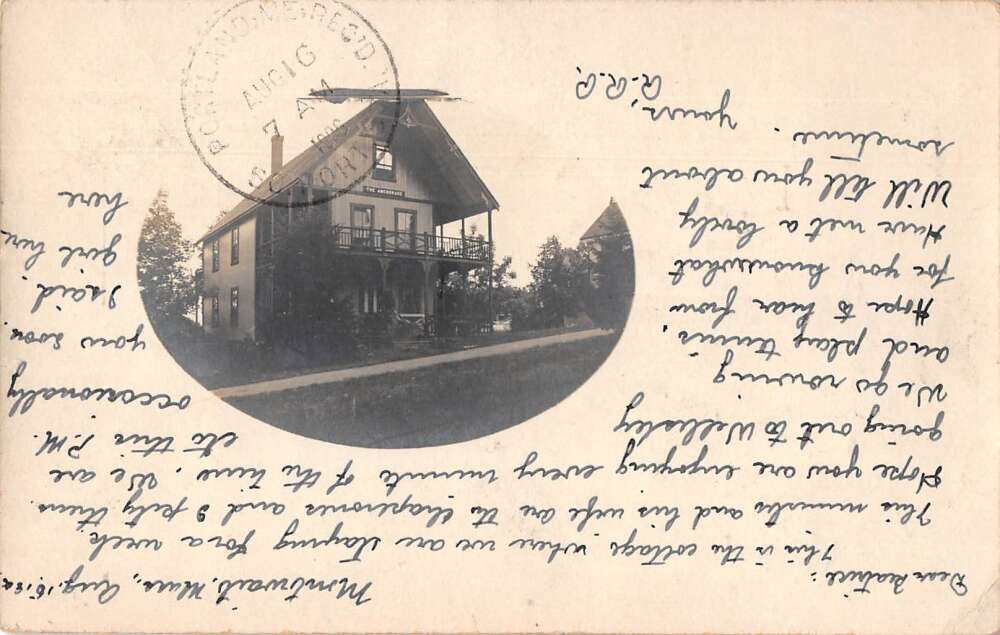 Montwait, Mass., Aug. 15,
Dear Beatrice:
This is the cottage where we are staying for a week.
This minister and his wife are the chaperones and I pity them.
Hope you are enjoying every minute of the time. We are
going out to Wellesley
etc this P.M.
We go rowing
occasionally
and play tennis.
Hope to hear from
you soon.
for you know what
I said.
Have met a lovely
girl here
Will tell you about
here
sometime.
Yours,
R.R.P.
PORTLAND, ME. REC'D.
AUG 16
7 AM
THE ANCHORAGE